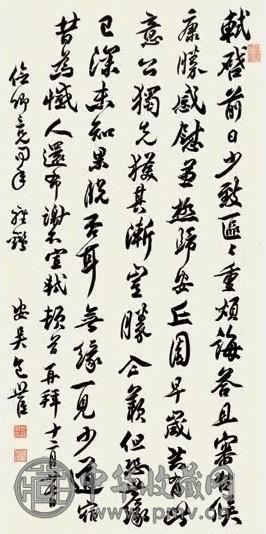 軾啓前日少致區區重煩誨答且審台侯
康勝感慰兼極歸安丘園早歲共有此
意公獨先獲其漸豈勝企羨但恐世緣
已深未知果脫否耳無緣一見少道宿
昔為憾人還布謝不宣軾頓首再拜十二月廿七日
儉卿 雅鑒 安吳包世臣
中华收藏网